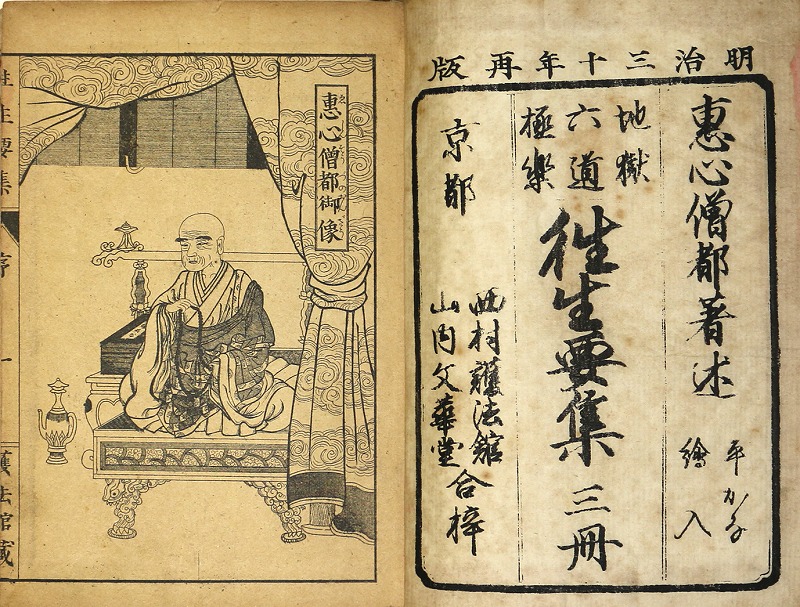 明治三十年再版
惠心僧都著述
平かな
繪入
地獄
六道
極樂
往生要集 三冊
京都
西村護法館
山内文華堂
合梓
惠心僧都御像
往生要集
序
一
護法館藏